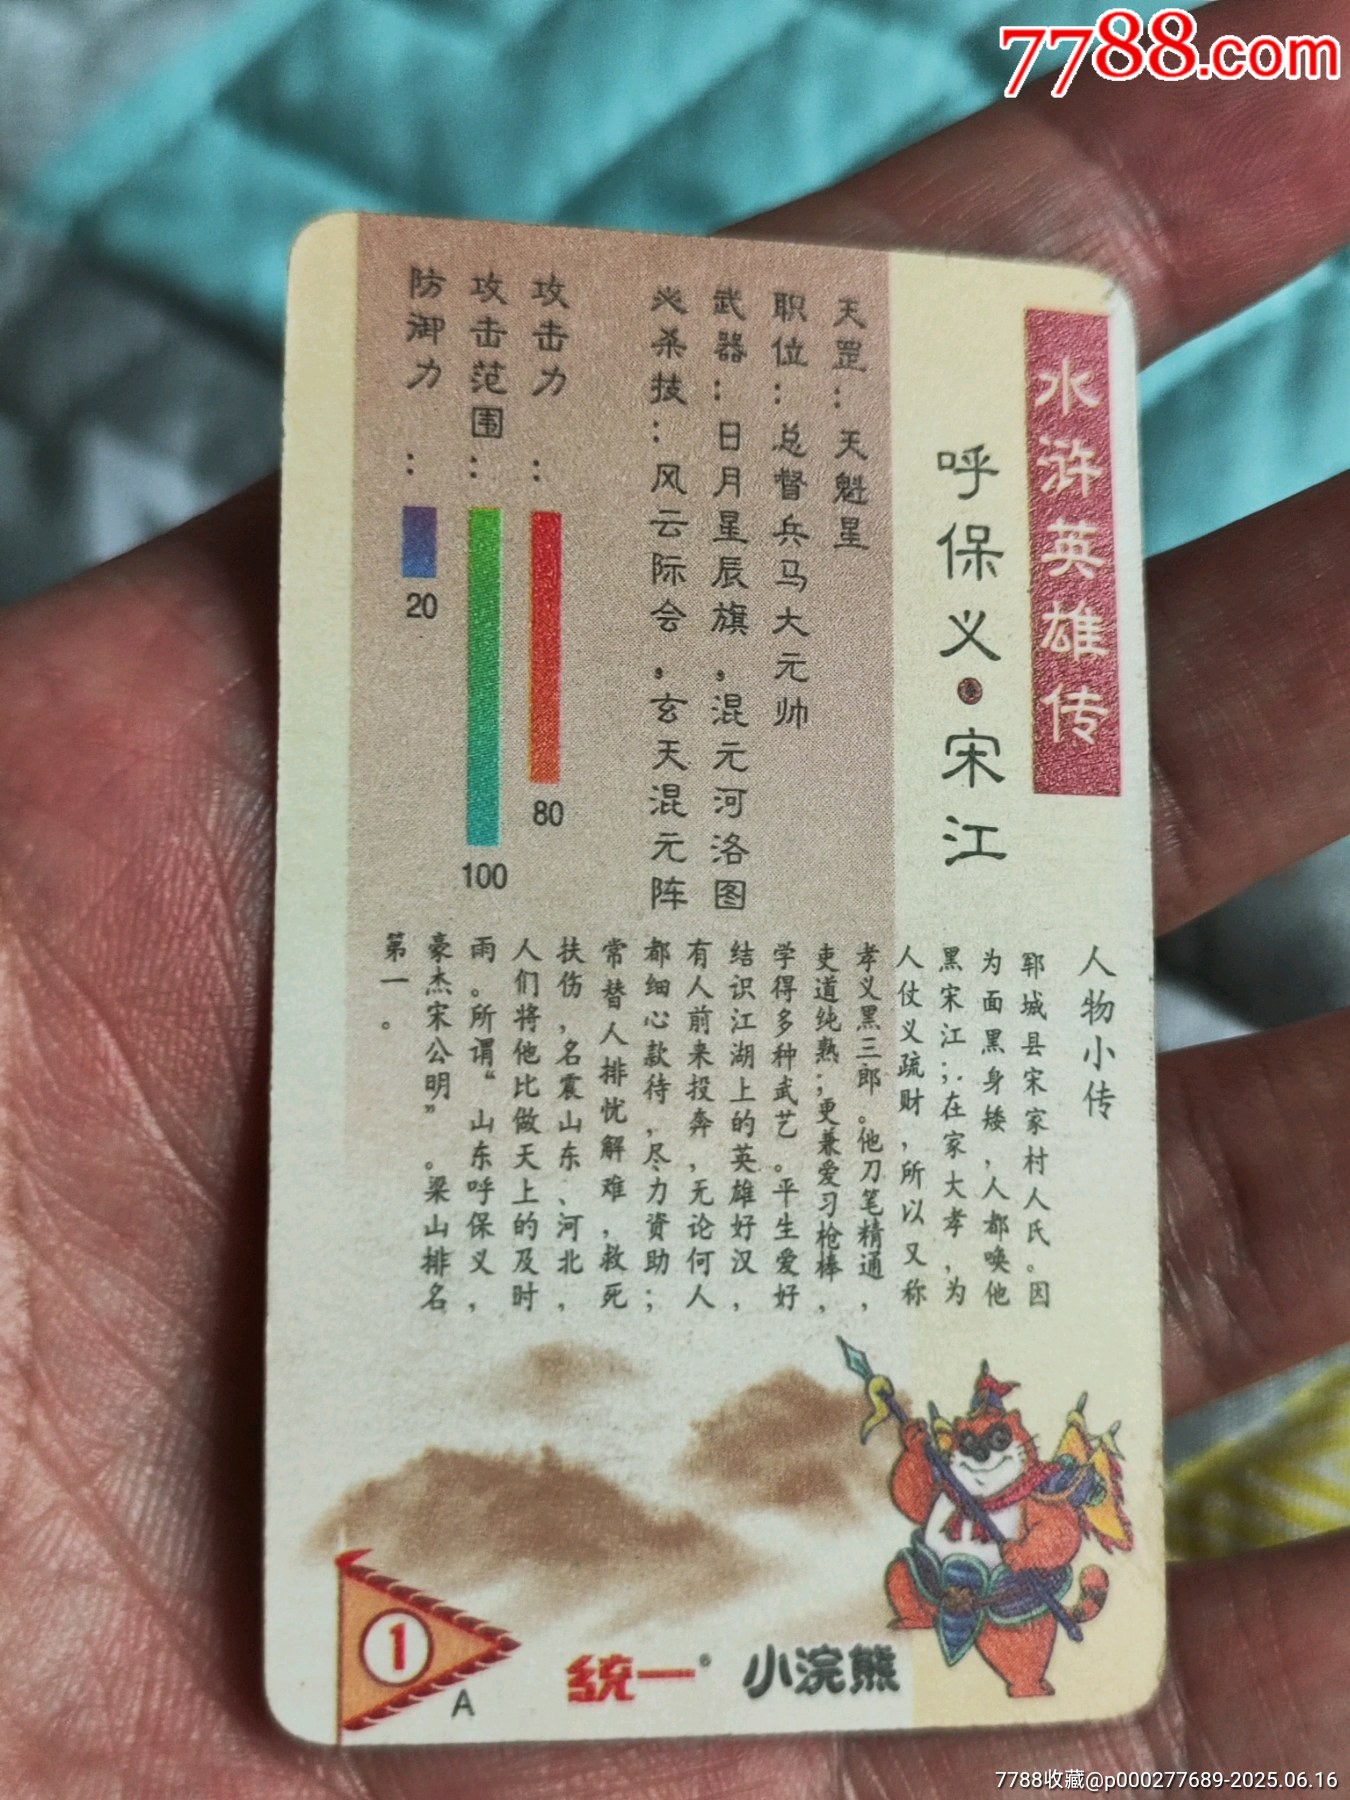 7788.com
水浒英雄传
呼保义·宋江
天罡：天魁星
职位：总督兵马大元帅
武器：日月星辰旗，混元河洛图
必杀技：风云际会，玄天混元阵
攻击力：
80
攻击范围：
100
防御力：
20
人物小传
郓城县宋家村人氏。因
为面黑身矮，人都唤他
黑宋江；在家大孝，为
人仗义疏财，所以又称
孝义黑三郎。他刀笔精通，
吏道纯熟；更兼爱习枪棒，
学得多种武艺。平生爱好
结识江湖上的英雄好汉，
有人前来投奔，无论何人
都细心款待，尽力资助；
常替人排忧解难，救死
扶伤，名震山东、河北，
人们将他比做天上的及时
雨。所谓“山东呼保义，
豪杰宋公明”。梁山排名
第一。
1
A
統一® 小浣熊
7788收藏@p000277689-2025.06.16